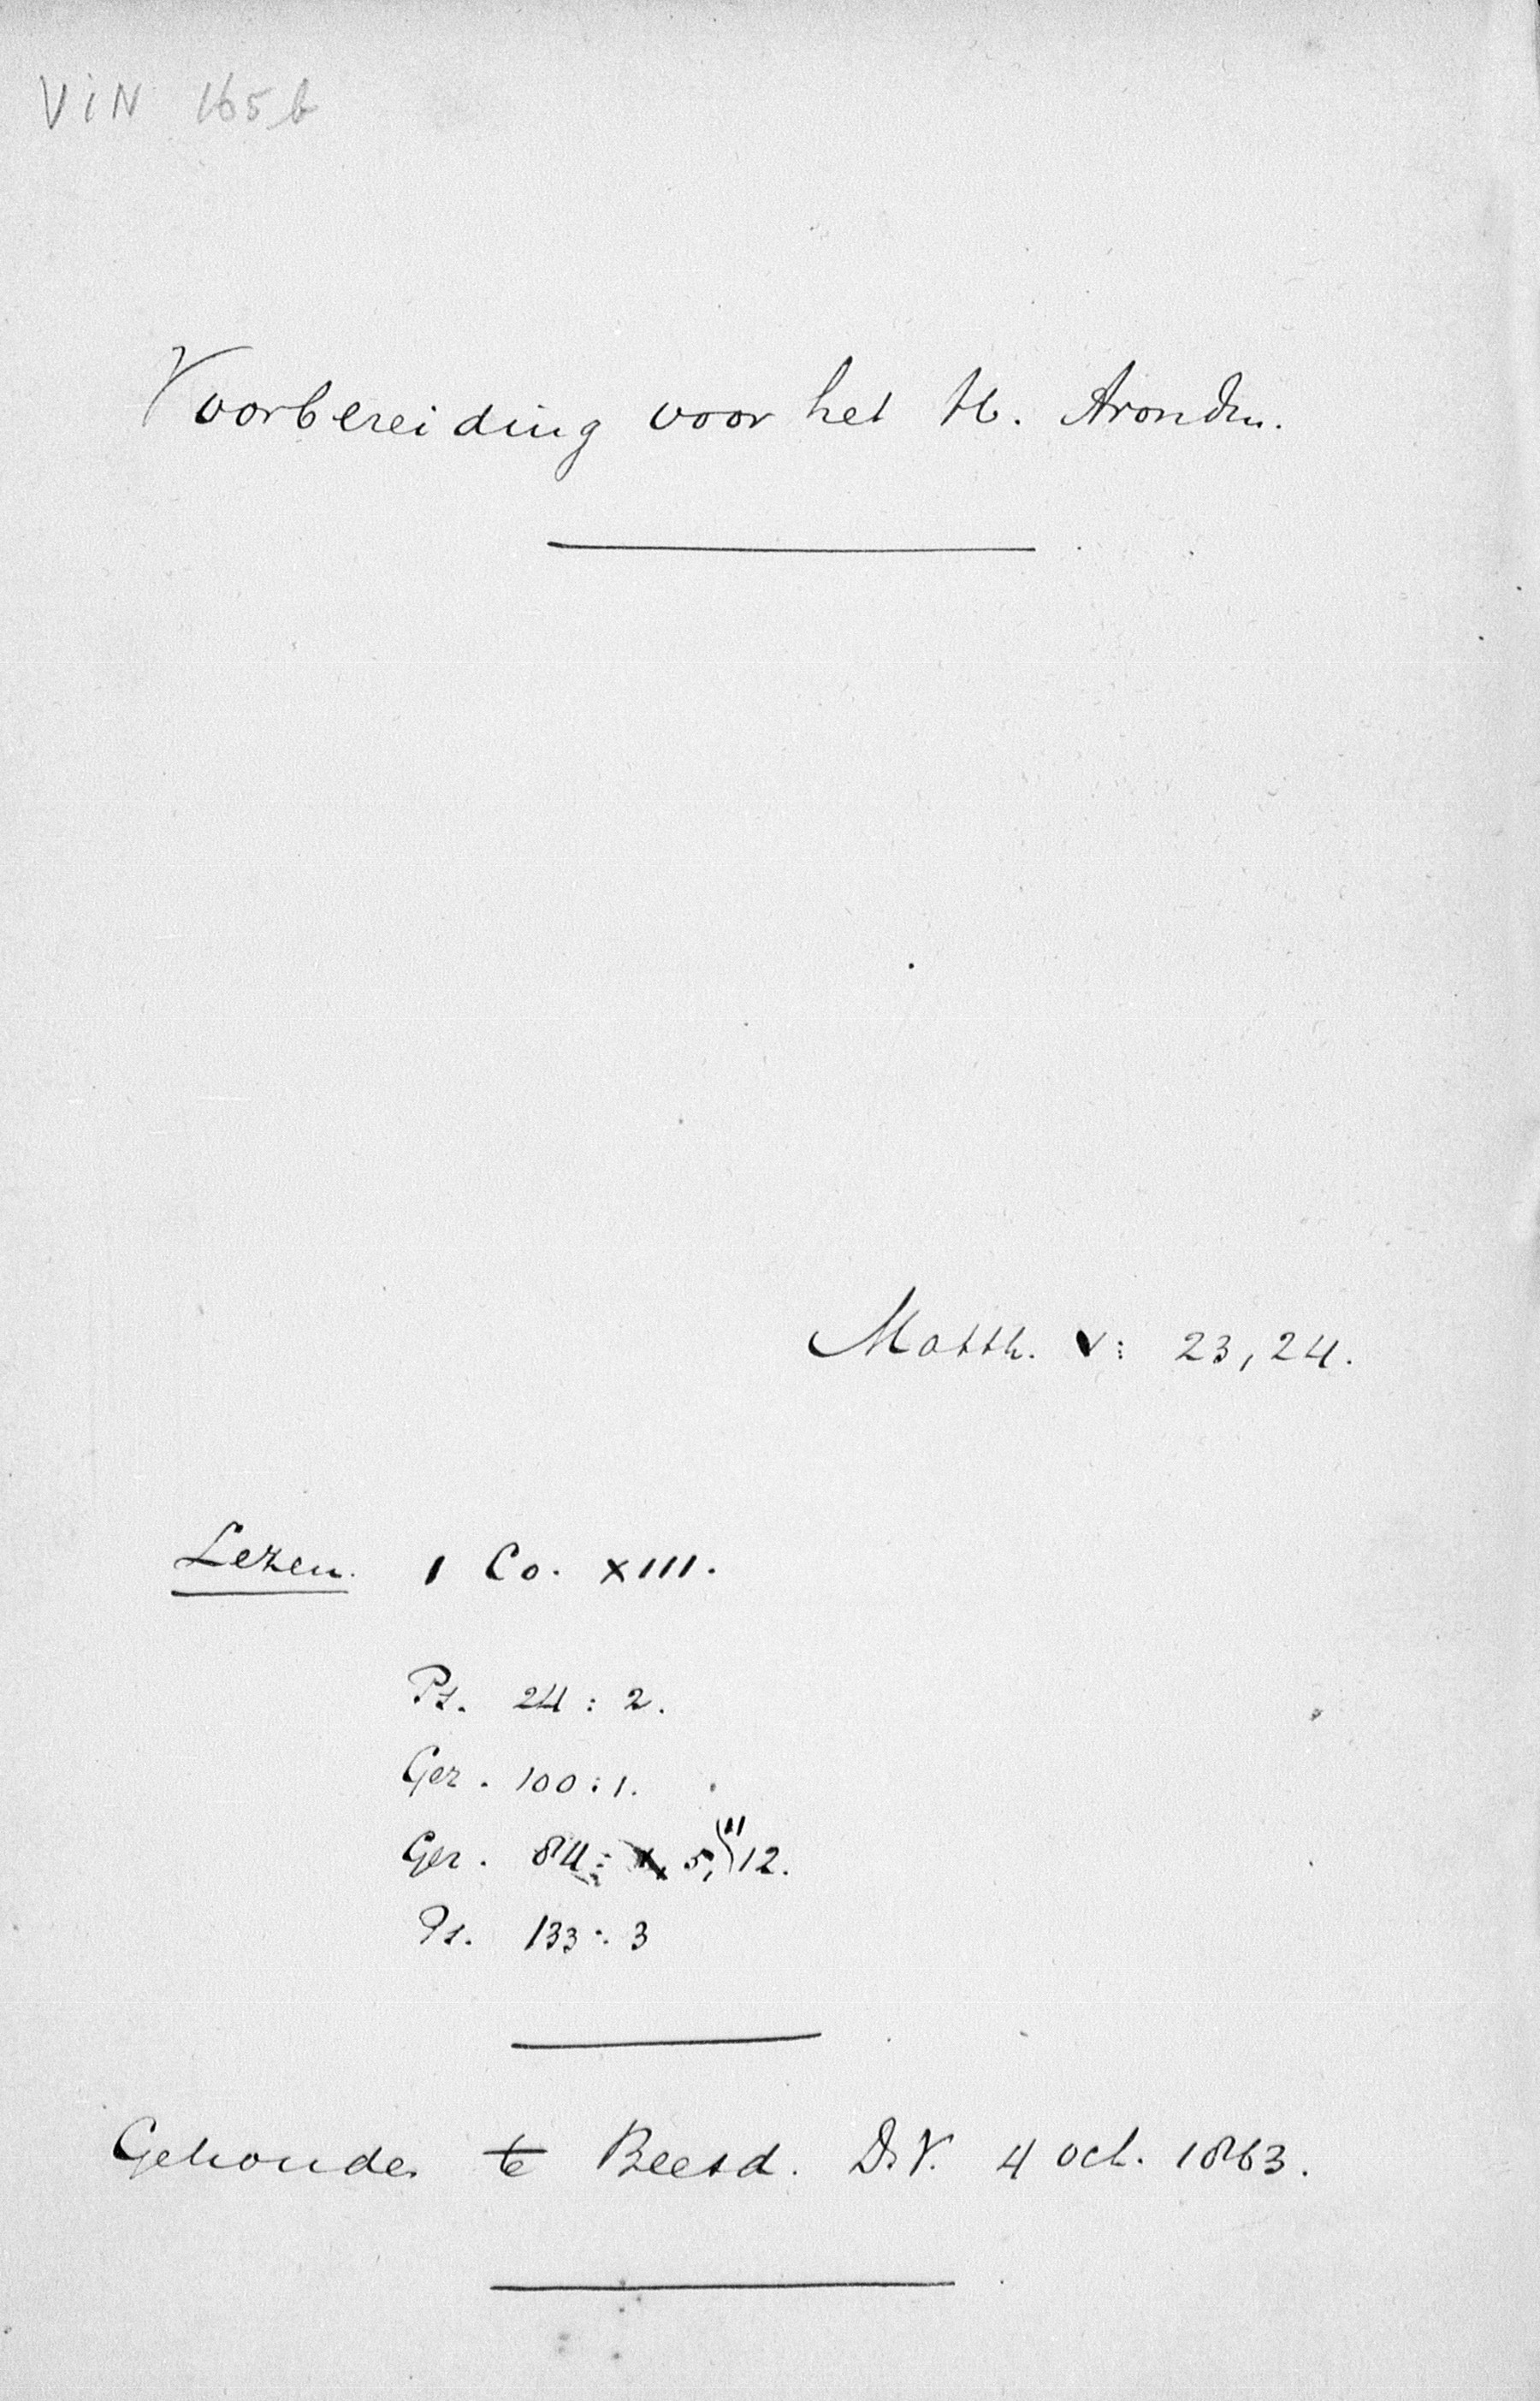 ViN 165b
Voorbereiding voor het H. Avondm.
Matth. V: 23, 24.
Lezen. 1 Co. XIII.
Ps. 24 : 2.
Gez. 100 : 1.
Gez. 84 : 5, 11 12.
Ps. 133 : 3
Gehouden te Beesd. D.V. 4 Oct. 1863.